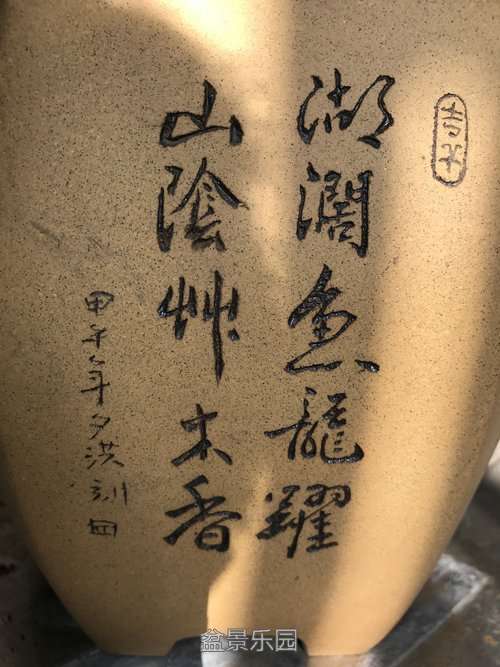 湖濶魚龍躍
山陰艸木香
甲午年夕洪刻
盆景乐园